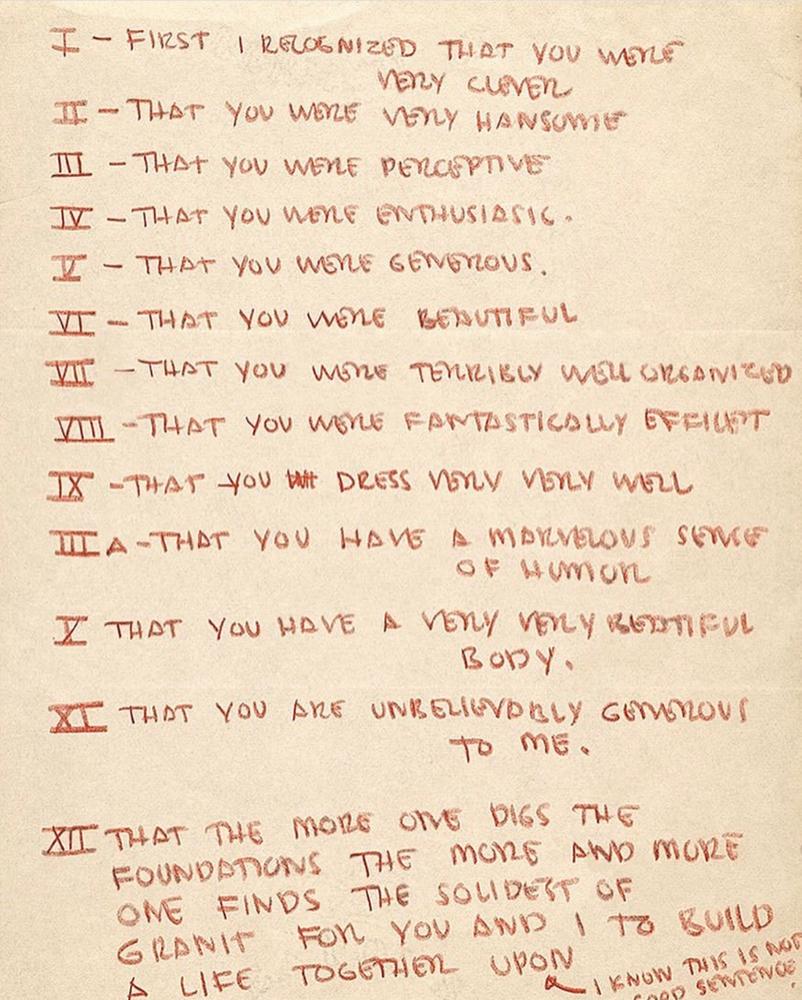 I - FIRST I RECOGNIZED THAT YOU WERE
VERY CLEVER
II - THAT YOU WERE VERY HANSOME
III - THAT YOU WERE PERCEPTIVE
IV - THAT YOU WERE ENTHUSIASIC.
V - THAT YOU WERE GENEROUS.
VI - THAT YOU WERE BEAUTIFUL
VII - THAT YOU WERE TERRIBLY WELL ORGANIZED
VIII - THAT YOU WERE FANTASTICALLY EFFICIET
IX - THAT YOU DRESS VERY VERY WELL
III A - THAT YOU HAVE A MARVELOUS SENSE
OF HUMOR
X THAT YOU HAVE A VERY VERY BEATIFUL
BODY.
XI THAT YOU ARE UNBELIEVABLY GENEROUS
TO ME.
XII THAT THE MORE ONE DIGS THE
FOUNDATIONS THE MORE AND MORE
ONE FINDS THE SOLIDEST OF
GRANIT FOR YOU AND I TO BUILD
A LIFE TOGETHER UPON
I KNOW THIS IS NOT
GOOD SENTENCE.